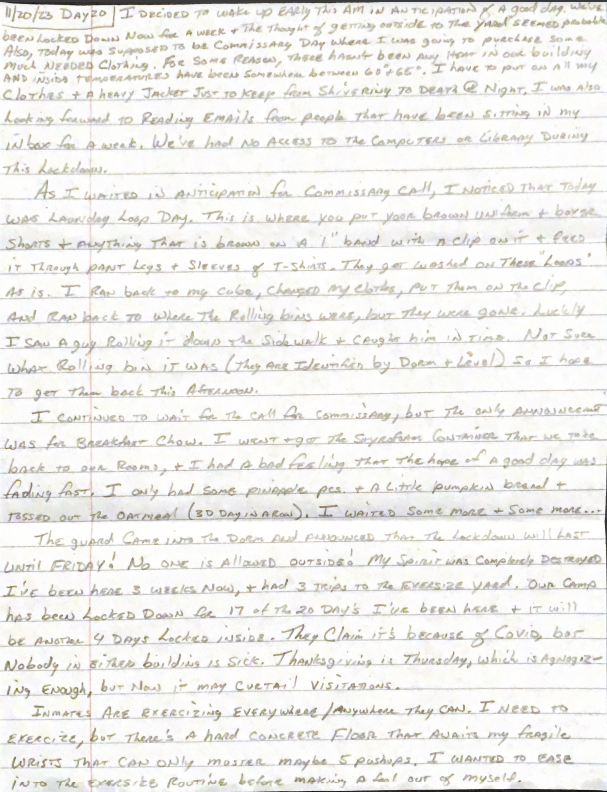 11/20/23 DAY20 | I DECIDED TO WAKE UP EARLY THIS AM IN ANTICIPATION OF A good day. We've
been Locked Down Now for a week + The Thought of getting outside to the yard seemed probable
Also, Today was supposed to be Commissary Day where I was going to purchase some
Much NEEDED Clothing. For Some Reason, There hasn't been any Heat in our building
AND inside Temperatures have been somewhere between 60 + 65°. I have to put on All my
Clothes + A heavy Jacket Just to keep from Shivering To Death @ Night. I was also
Looking forward to Reading Emails from people that have been sitting in my
inbox for a week. We've had No Access to the Computers or Library During
This Lockdown.
As I waited in Anticipation for Commissary Call, I noticed that Today
was Laundry Loop Day. This is where you put your brown uniform +
Shorts + Anything That is brown on A 1" band with a Clip on it + feed
it Through pant Legs + Sleeves of T-Shirts. They get washed on These "Loops"
As is. I Ran back to my Cube, Changed my Clothes, put Them on the Clip,
And Ran back to where The Rolling bins were, but They were gone. Luckily
I saw a guy Rolling it down the Sidewalk + Caught him in Time. Not Sure
What Rolling bin it was (They Are Identified by Dorm + Level) So I hope
To get Them back This Afternoon.
I Continued to wait for the Call for Commissary, but The only Announcement
was for Breakfast Chow. I went + got The Styrofoam Container That we take
back to our Rooms, + I had A bad feeling That The hope of A good day was
fading fast. I only had Some pineapple pcs. + A Little pumpkin bread +
Tossed out The Oatmeal (3D Day in A row). I waited Some more + Some more...
The guard Came into The Dorm and Announced That The Lockdown will Last
Until FRIDAY! No one is Allowed outside! My Spirit was Completely Destroyed
I've been here 3 weeks Now, + had 3 Trips to The Exersize yard. Our Camp
has been Locked Down for 17 of The 20 Day's I've been here + it will
be Another 4 Days Locked inside. They Claim it's because of Covid, but
Nobody in Either building is Sick. Thanksgiving is Thursday, which is Agnogiz-
ing Enough, but Now it may Curtail Visitations.
Inmates Are Exercizing Everywhere/Anywhere They Can. I need To
Exercize, but There's A hard Concrete Floor That Awaits my fragile
Wrists That Can Only Muster Maybe 5 pushups. I wanted to Ease
into The Exersize Routine before making A fool out of myself.